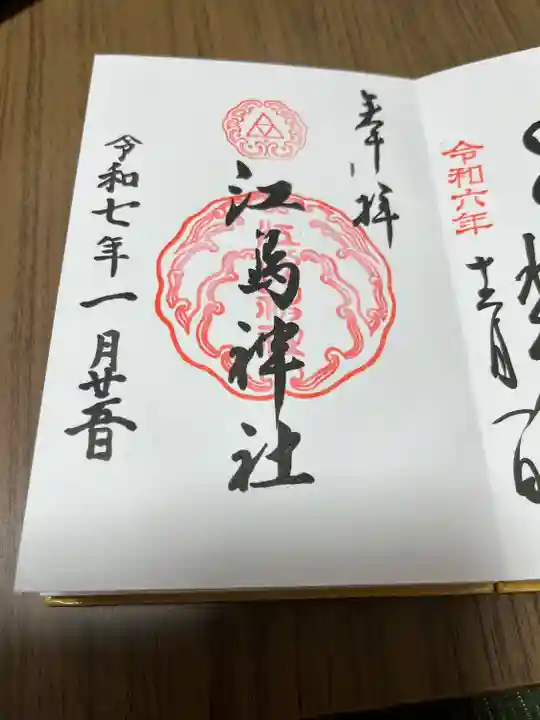 令和六年
十二月
奉拝
江島神社
令和七年一月廿五日